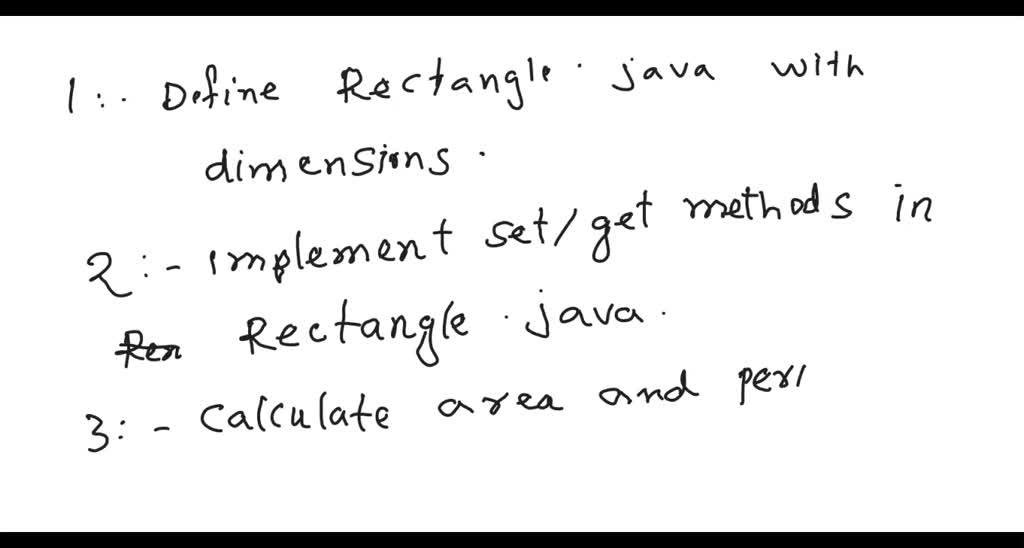 1:. Define Rectangle. java with
dimensions.
2:- implement set/get methods in
Rectangle.java.
3:- Calculate area and peri